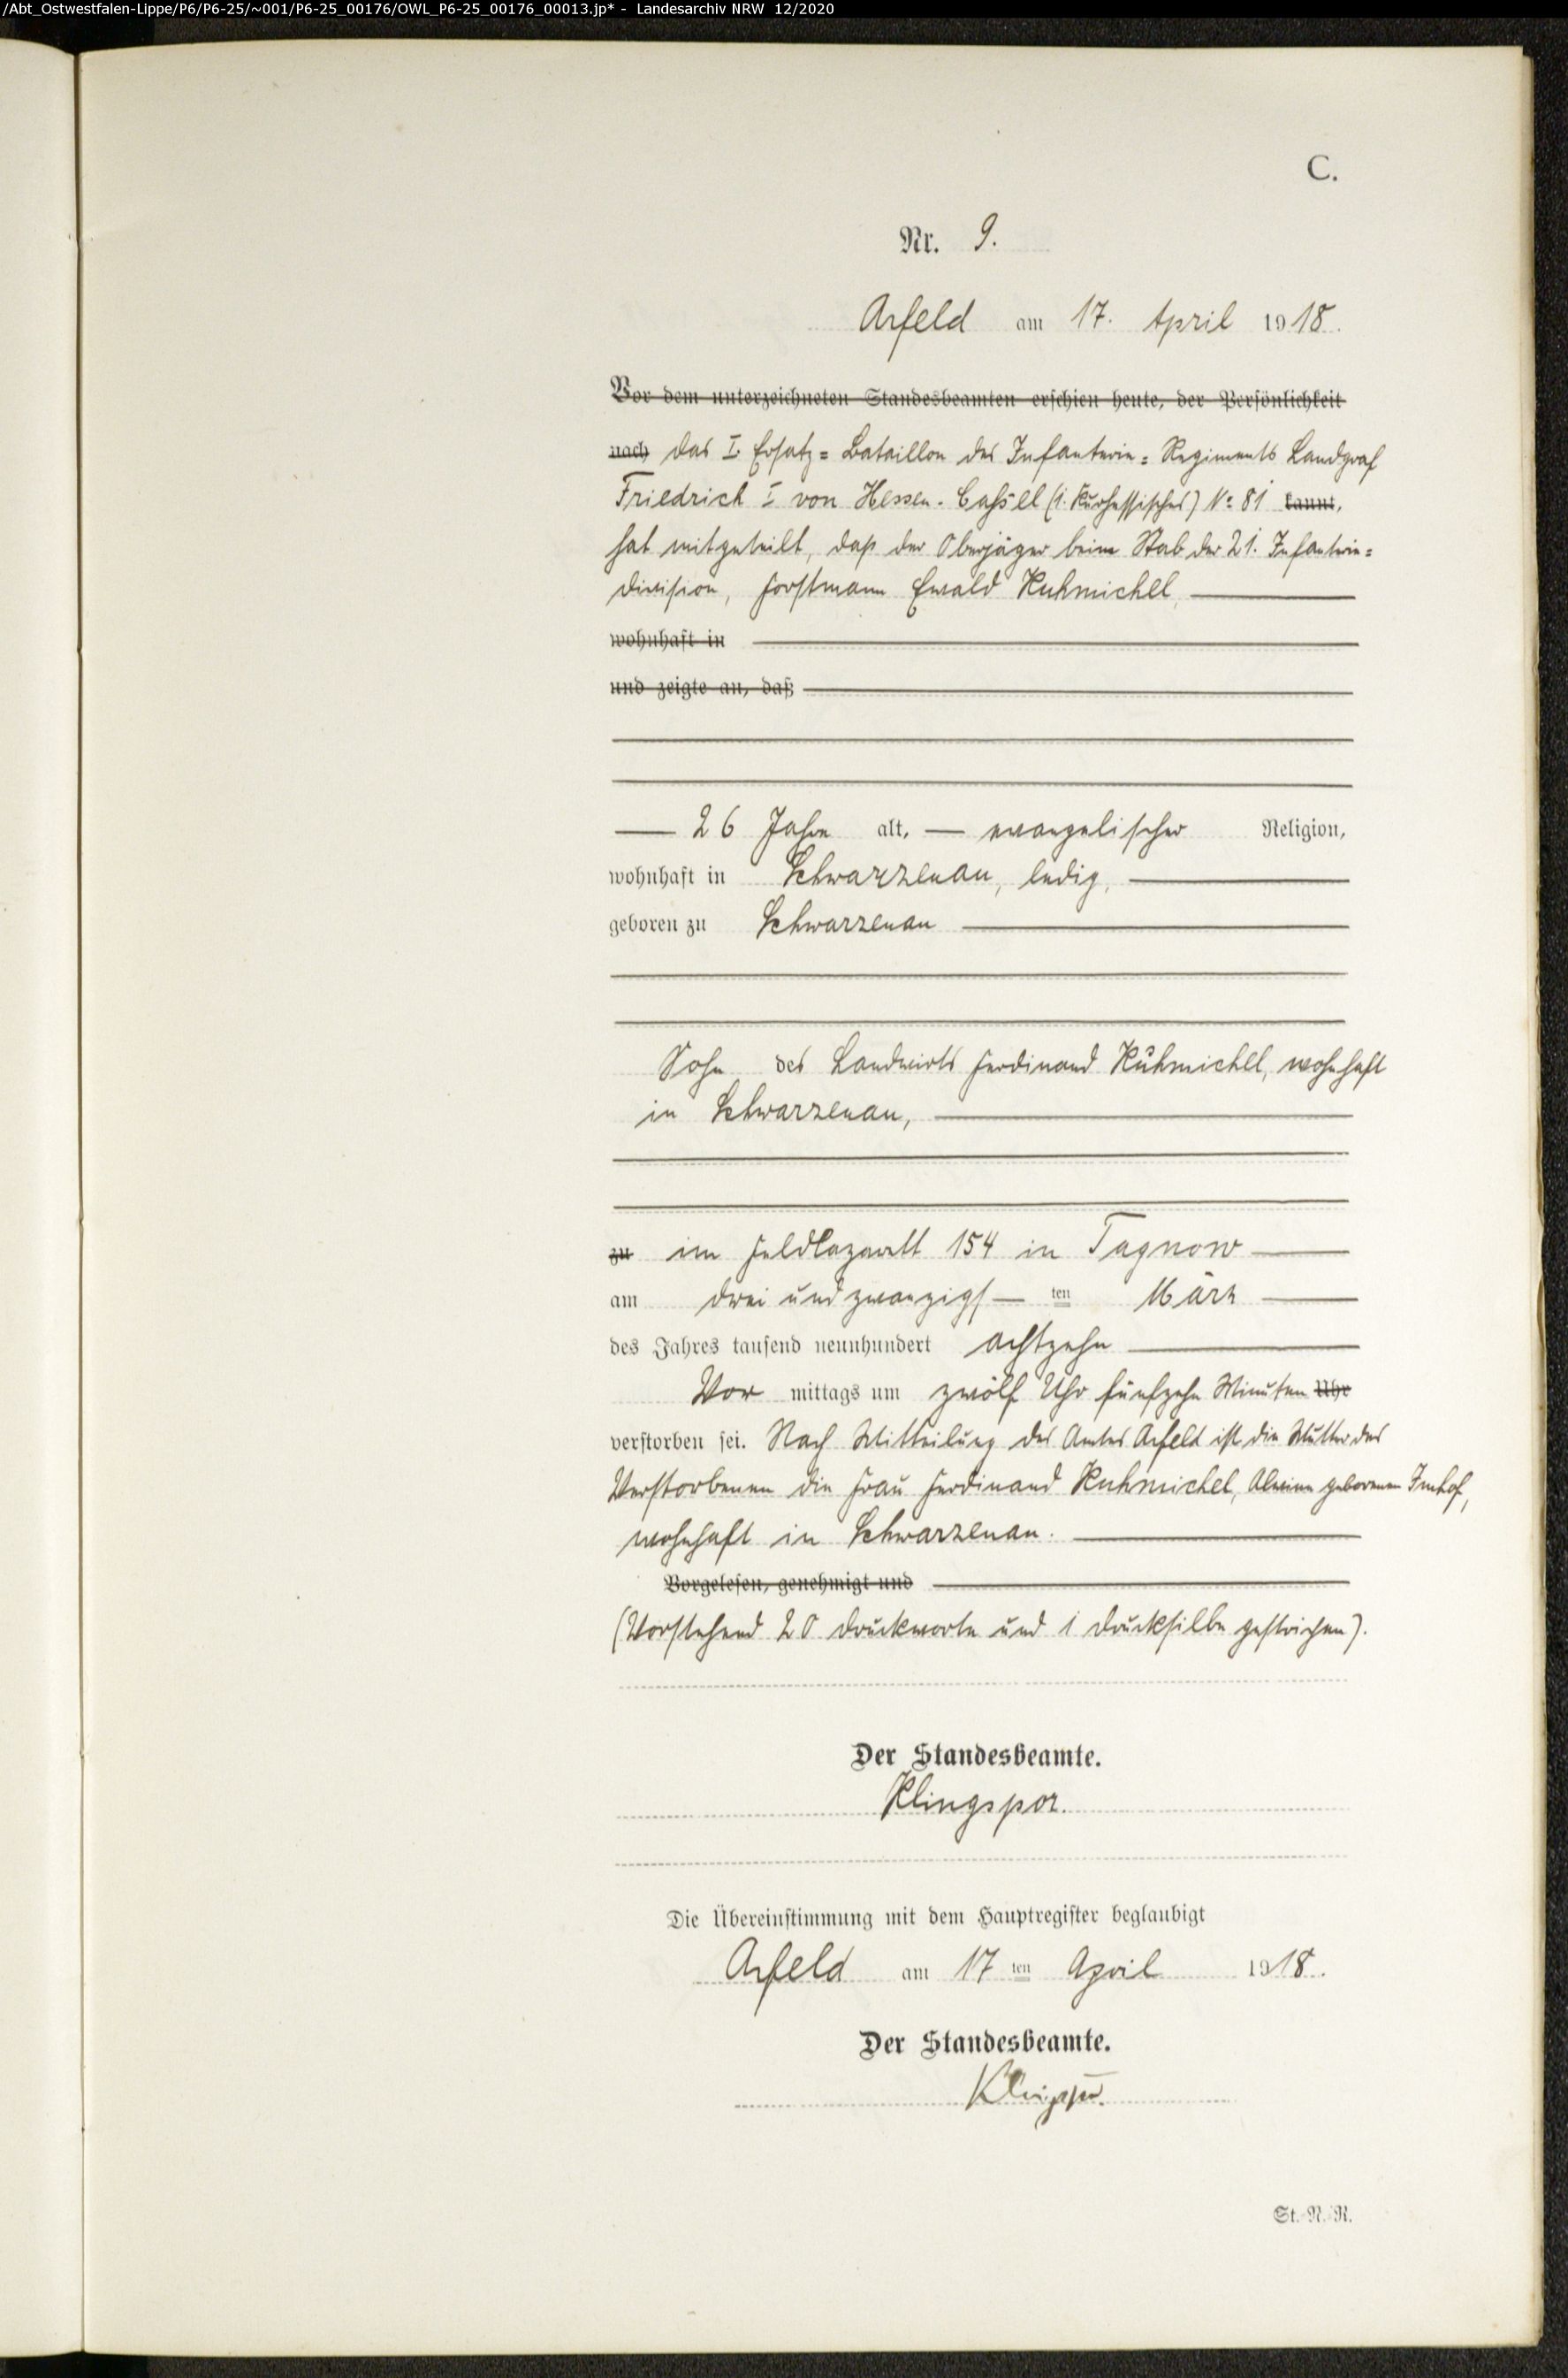 /Abt_Ostwestfalen-Lippe/P6/P6-25/~001/P6-25_00176/OWL_P6-25_00176_00013.jp* - Landesarchiv NRW 12/2020
C.
Nr. 9.
Arfeld am 17. April 1918.
Vor dem unterzeichneten Standesbeamten erschien heute, der Persönlichkeit
nach das I. Ersatz=Bataillon des Infanterie=Regiments Landgraf
Friedrich I von Hessen-Cassel (1. Kurhessisches) No 81 kannt,
hat mitgeteilt, daß der Oberjäger beim Stab der 21. Infanterie=
division, Forstmann Ewald Kuhmichel,
wohnhaft in
und zeigte an, daß
26 Jahre alt, evangelischer Religion,
wohnhaft in Schwarzenau, ledig,
geboren zu Schwarzenau
Sohn des Landwirts Ferdinand Kuhmichel, wohnhaft
in Schwarzenau,
zu im Feldlazarett 154 in Tagnow
am drei und zwanzigsten März
des Jahres tausend neunhundert achtzehn
Vor mittags um zwölf Uhr fünfzehn Minuten Uhr
verstorben sei. Nach Mitteilung des Amtes Arfeld ist die Mutter des
Verstorbenen die Frau Ferdinand Kuhmichel, Alwine geborenen Imhof,
wohnhaft in Schwarzenau.
Vorgelesen, genehmigt und
(Vorstehend 20 Druckworte und 1 Drucksilbe gestrichen).
Der Standesbeamte.
Klingspor.
Die Übereinstimmung mit dem Hauptregister beglaubigt
Arfeld am 17 ten April 1918.
Der Standesbeamte.
Klingspor.
St.-N.-R.